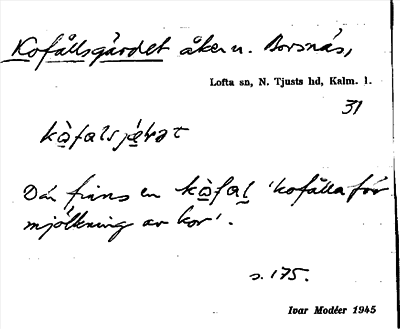 Kofållsgärdet åker u. Borsnäs,
Lofta sn, N. Tjusts hd, Kalm. l.
31
kòfalsjæ̀rət
Där finns en kòfal 'kofålla för
mjölkning av kor'.
s. 175.
Ivar Modéer 1945